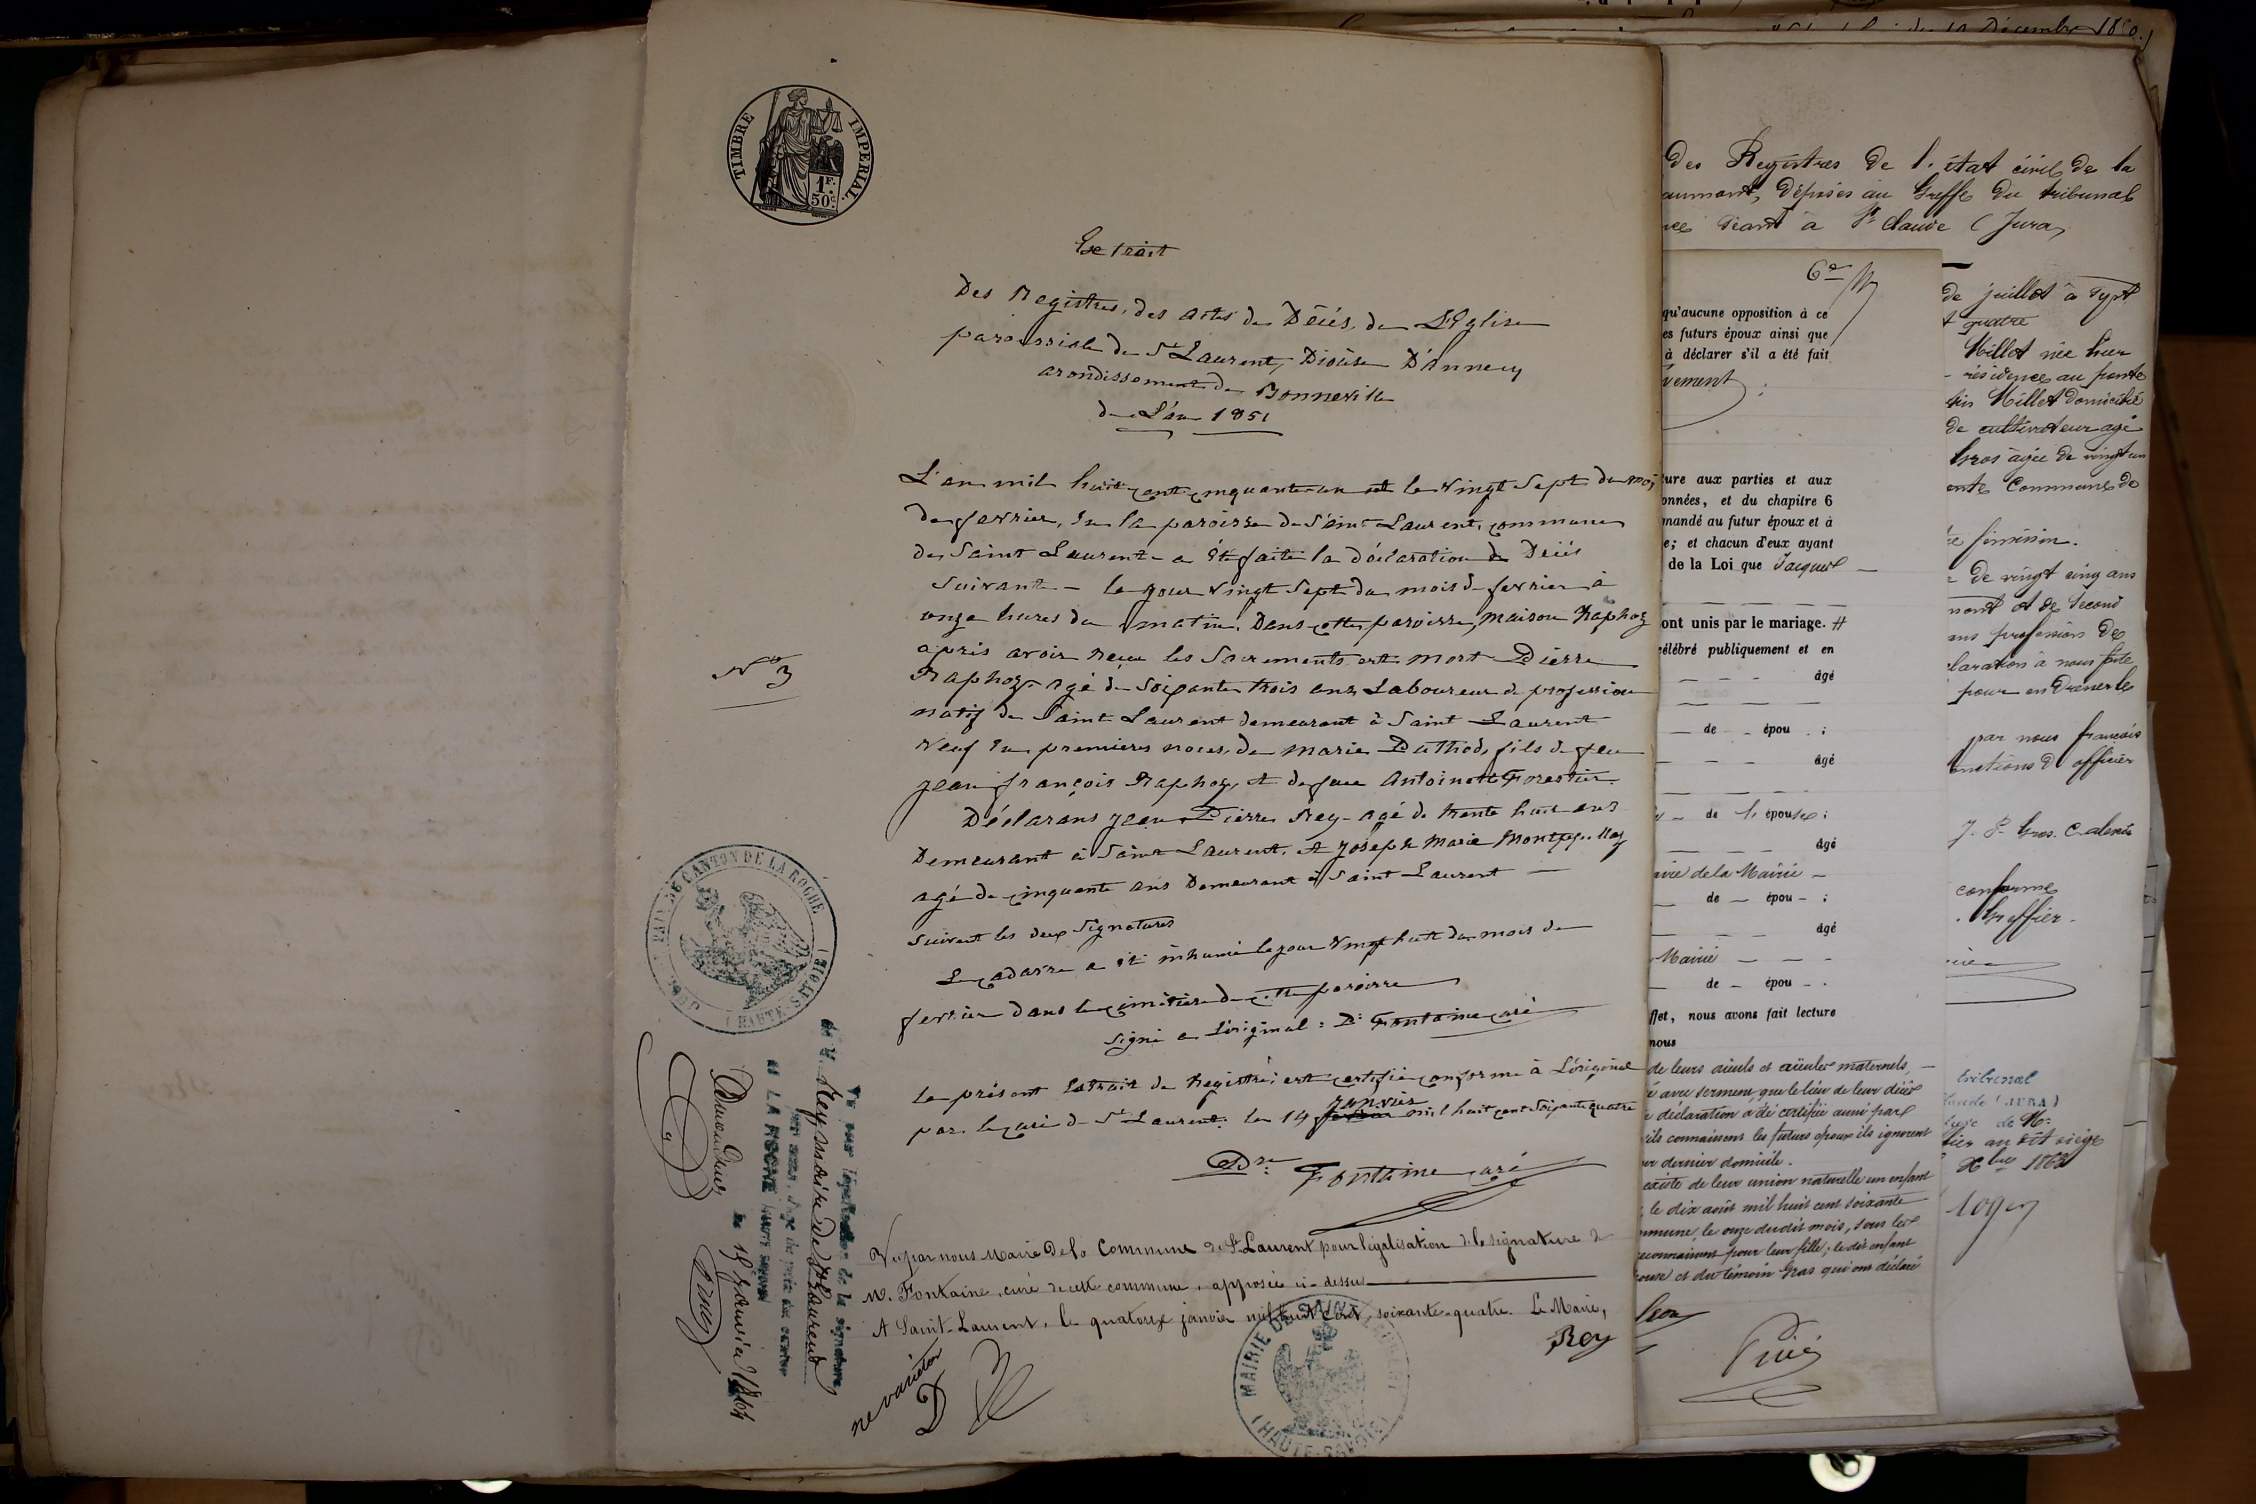 TIMBRE IMPERIAL.
1F. 50c.
Extrait
Des Registres, des actes de Décés, de L'Eglise
paroissiale de St Laurent, Diocèse D'Annecy
arondissement de Bonneville
de L'an 1851
L'an mil huit cent cinquante-un et le vingt sept du mois
de fevrier, en la paroisse de Saint Laurent, commune
de Saint Laurent - a été faite la déclaration de Décés
suivante - le jour vingt sept du mois de fevrier à
onze hures du matin. Dans cette paroisse, maison Raphoz
après avoir reçu les Sacrements est mort Pierre
N° 3
Raphoz agé de soixante trois ans Laboureur de profession
natif de Saint Laurent demeurant à Saint Laurent
veuf en premieres noces de Marie Duthod, fils de feu
jean françois Raphoz, et de feue Antoinette Forestier.
Déclarans jean Pierre Rey agé de trente huit ans
Demeurant à Saint Laurent, et joseph Marie Montpellaz
agé de cinquante ans Demeurant à Saint Laurent —
Suivent les deux Signatures
Le cadavre a été inhumé le jour vingt huit du mois de
fevrier dans le cimetiere de cette paroisse
Signé a l'original : D: Fontaine curé
Le présent Extrait de Registre est certifié conforme à L'original
janvier
par le curé de St Laurent: le 14 mil huit cent Soixante quatre
Dre Fontaine curé
Vu par nous Maire de la Commune de St Laurent pour légalisation de la signature de
M. Fontaine, curé de cette commune, apposée ci-dessus
A Saint-Laurent, le quatorze janvier mil huit cent, soixante-quatre. Le Maire,
Rey
MAIRIE DE SAINT LAURENT
(HAUTE-SAVOIE)
ne varietur
D
CANTON DE LA ROCHE
(HAUTE-SAVOIE)
Vu pour légalisation de la signature
de M. Rey maire de St Laurent
par nous, Juge de paix du canton
de LA ROCHE
le 15 janvier 1864
10 Décembre
des Registres de l'état civil de la
déposés au Greffe du tribunal
séant à St Claude (Jura,
6e
qu'aucune opposition à ce
es futurs époux ainsi que
à déclarer s'il a été fait
vement
ture aux parties et aux
onnées, et du chapitre 6
mandé au futur époux et à
e; et chacun d'eux ayant
de la Loi que Jacquet
ont unis par le mariage. #
célébré publiquement et en
agé
de - épou - ;
agé
de l'épouse ;
agé
de la Mairie -
de - épou - ;
agé
Mairie - - -
de - épou - .
ffet, nous avons fait lecture
nous
de leurs aïeuls et aïeules maternels,
avec serment que le lieu de leur décès
déclaration a été certifiée aussi par
ils connaissent les futurs époux ils ignorent
dernier domicile.
existe de leur union naturelle un enfant
le dix août mil huit cent soixante
commune, le onze dudit mois, sous les
reconnaissent pour leur fille; le dit enfant
et du témoin Gras qui ont déclaré
de juillet à sept
quatre
Millet née hier
résidence au
Millet domicilié
de cultivateur agé
Gros agée de vingt un
Commune de
féminin.
de vingt cinq ans
et de second
ans profession de
déclaration à nous faite
pour en
par nous françois
fonctions d'officier
conforme
Greffier.
tribunal
(JURA)
siège